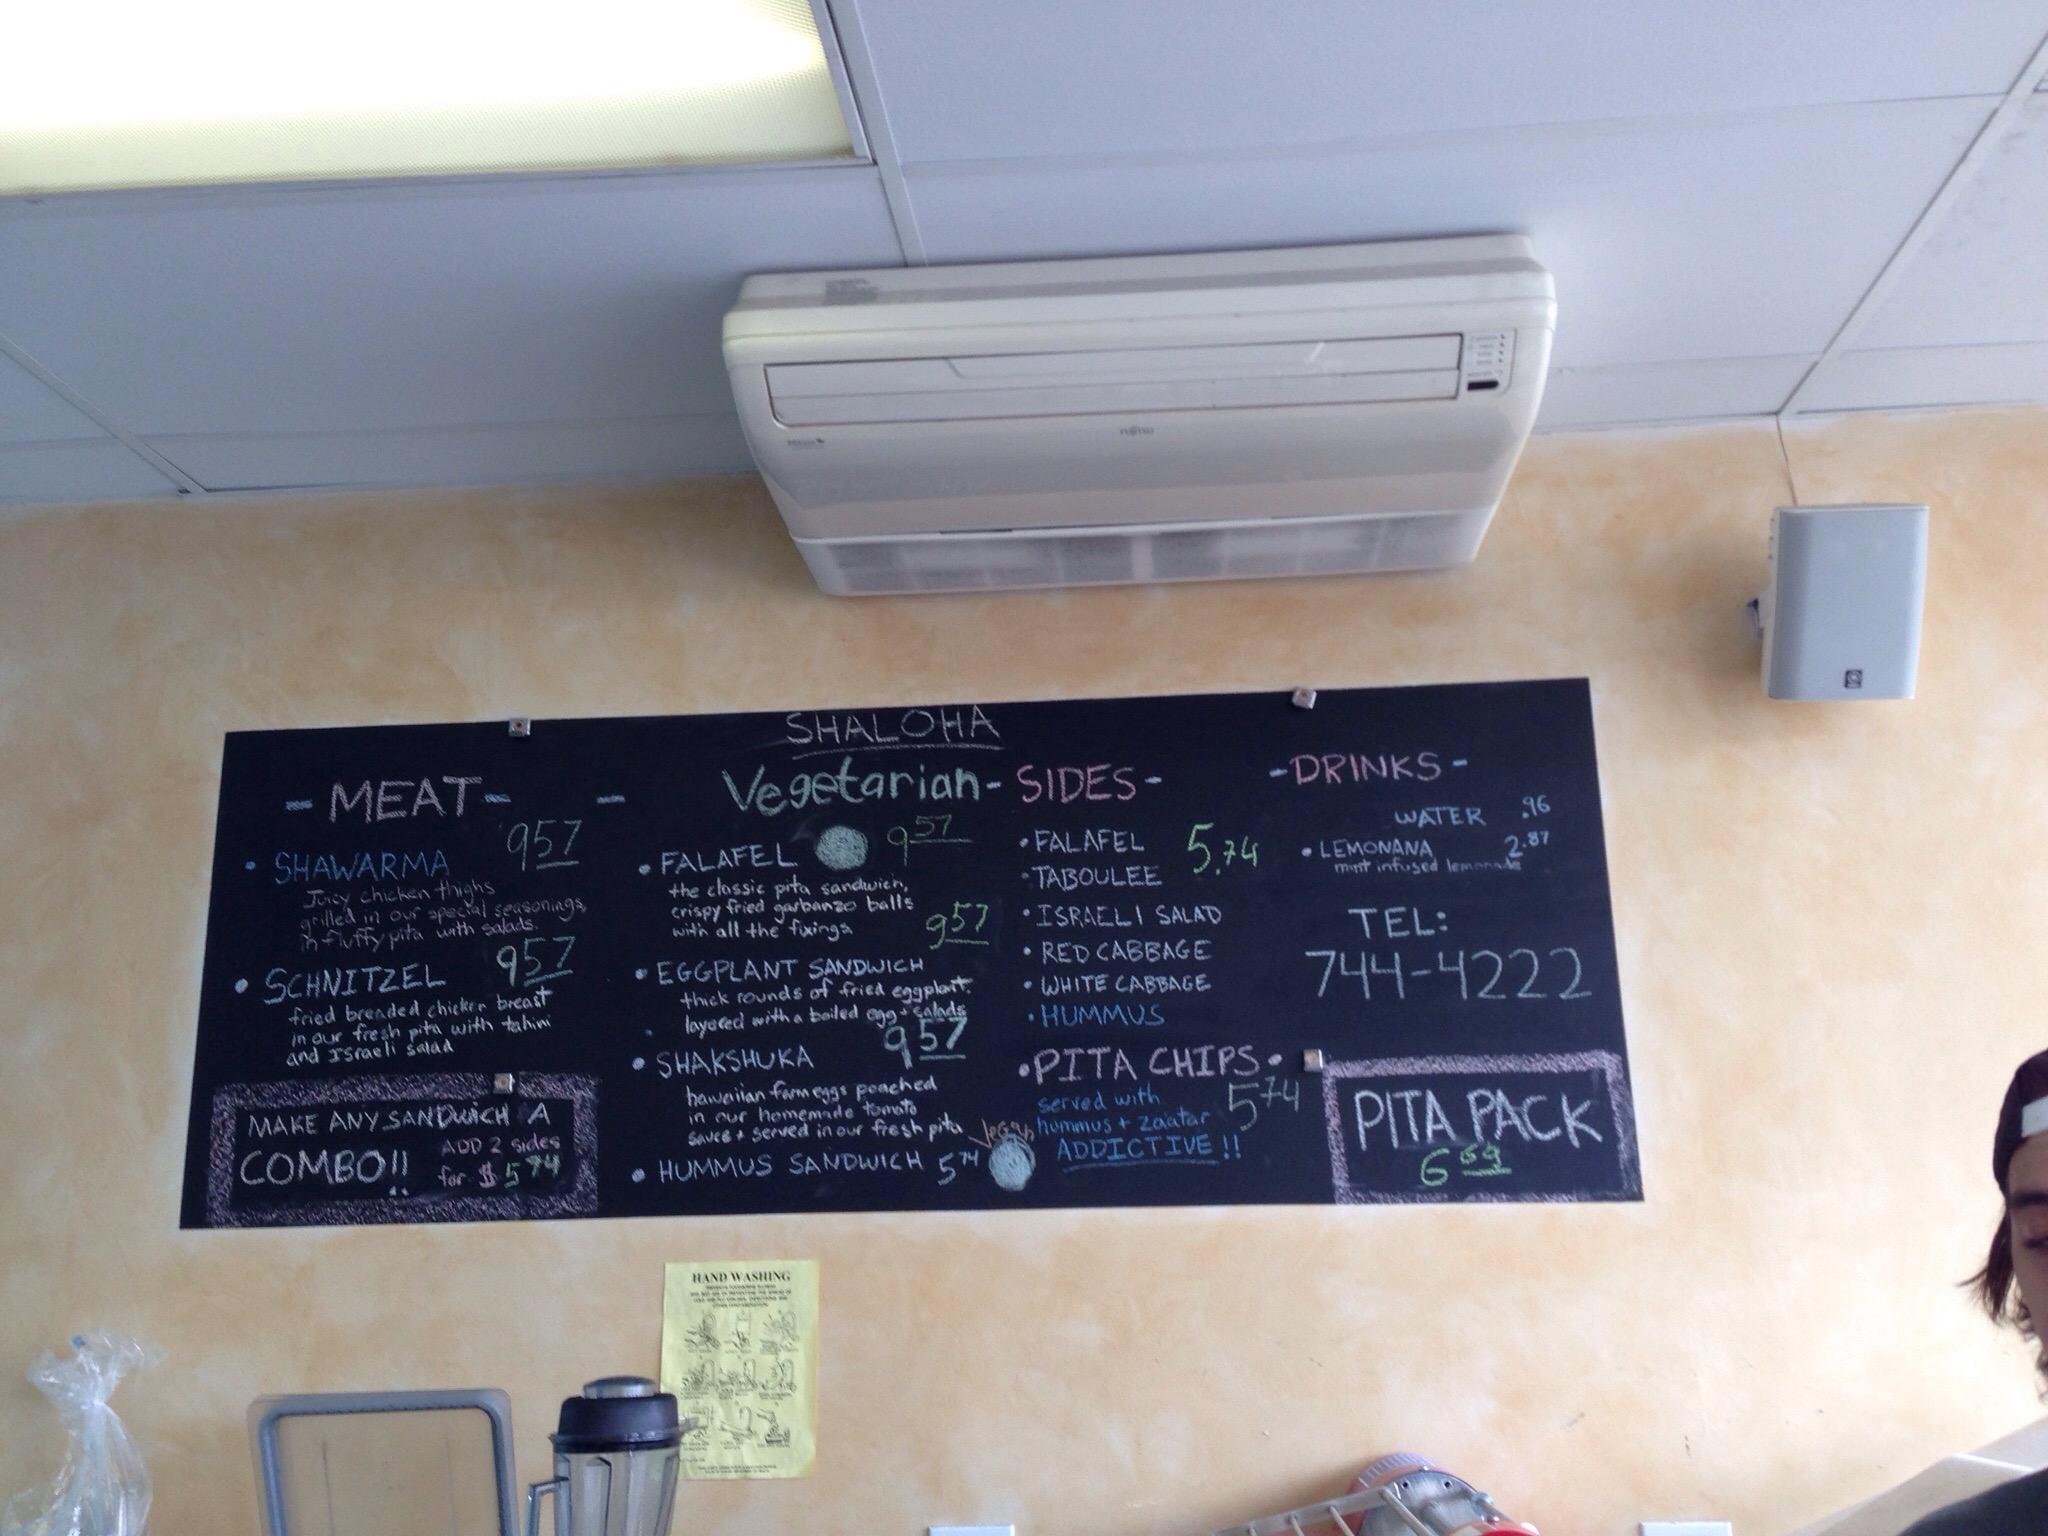 SHALOHA
- MEAT -
• SHAWARMA 9 57
Juicy chicken thighs
grilled in our special seasonings,
in fluffy pita with salads.
• SCHNITZEL 9 57
fried breaded chicken breast
in our fresh pita with tahini
and Israeli salad
MAKE ANY SANDWICH A
COMBO!! ADD 2 sides
for $5 74
- Vegetarian -
• FALAFEL 9 57
the classic pita sandwich,
crispy fried garbanzo balls
with all the fixings
9 57
• EGGPLANT SANDWICH
thick rounds of fried eggplant.
layered with a boiled egg + salads
• SHAKSHUKA 9 57
hawaiian farm eggs poached
in our homemade tomato
sauce + served in our fresh pita
• HUMMUS SANDWICH 5 74
vegan
SIDES -
• FALAFEL 5.74
• TABOULEE
• ISRAELI SALAD
• RED CABBAGE
• WHITE CABBAGE
• HUMMUS
• PITA CHIPS •
served with 5 74
hummus + zaatar
ADDICTIVE!!
- DRINKS -
WATER .96
• LEMONANA 2.87
mint infused lemonade
TEL:
744-4222
PITA PACK
6
HAND WASHING
FUJITSU